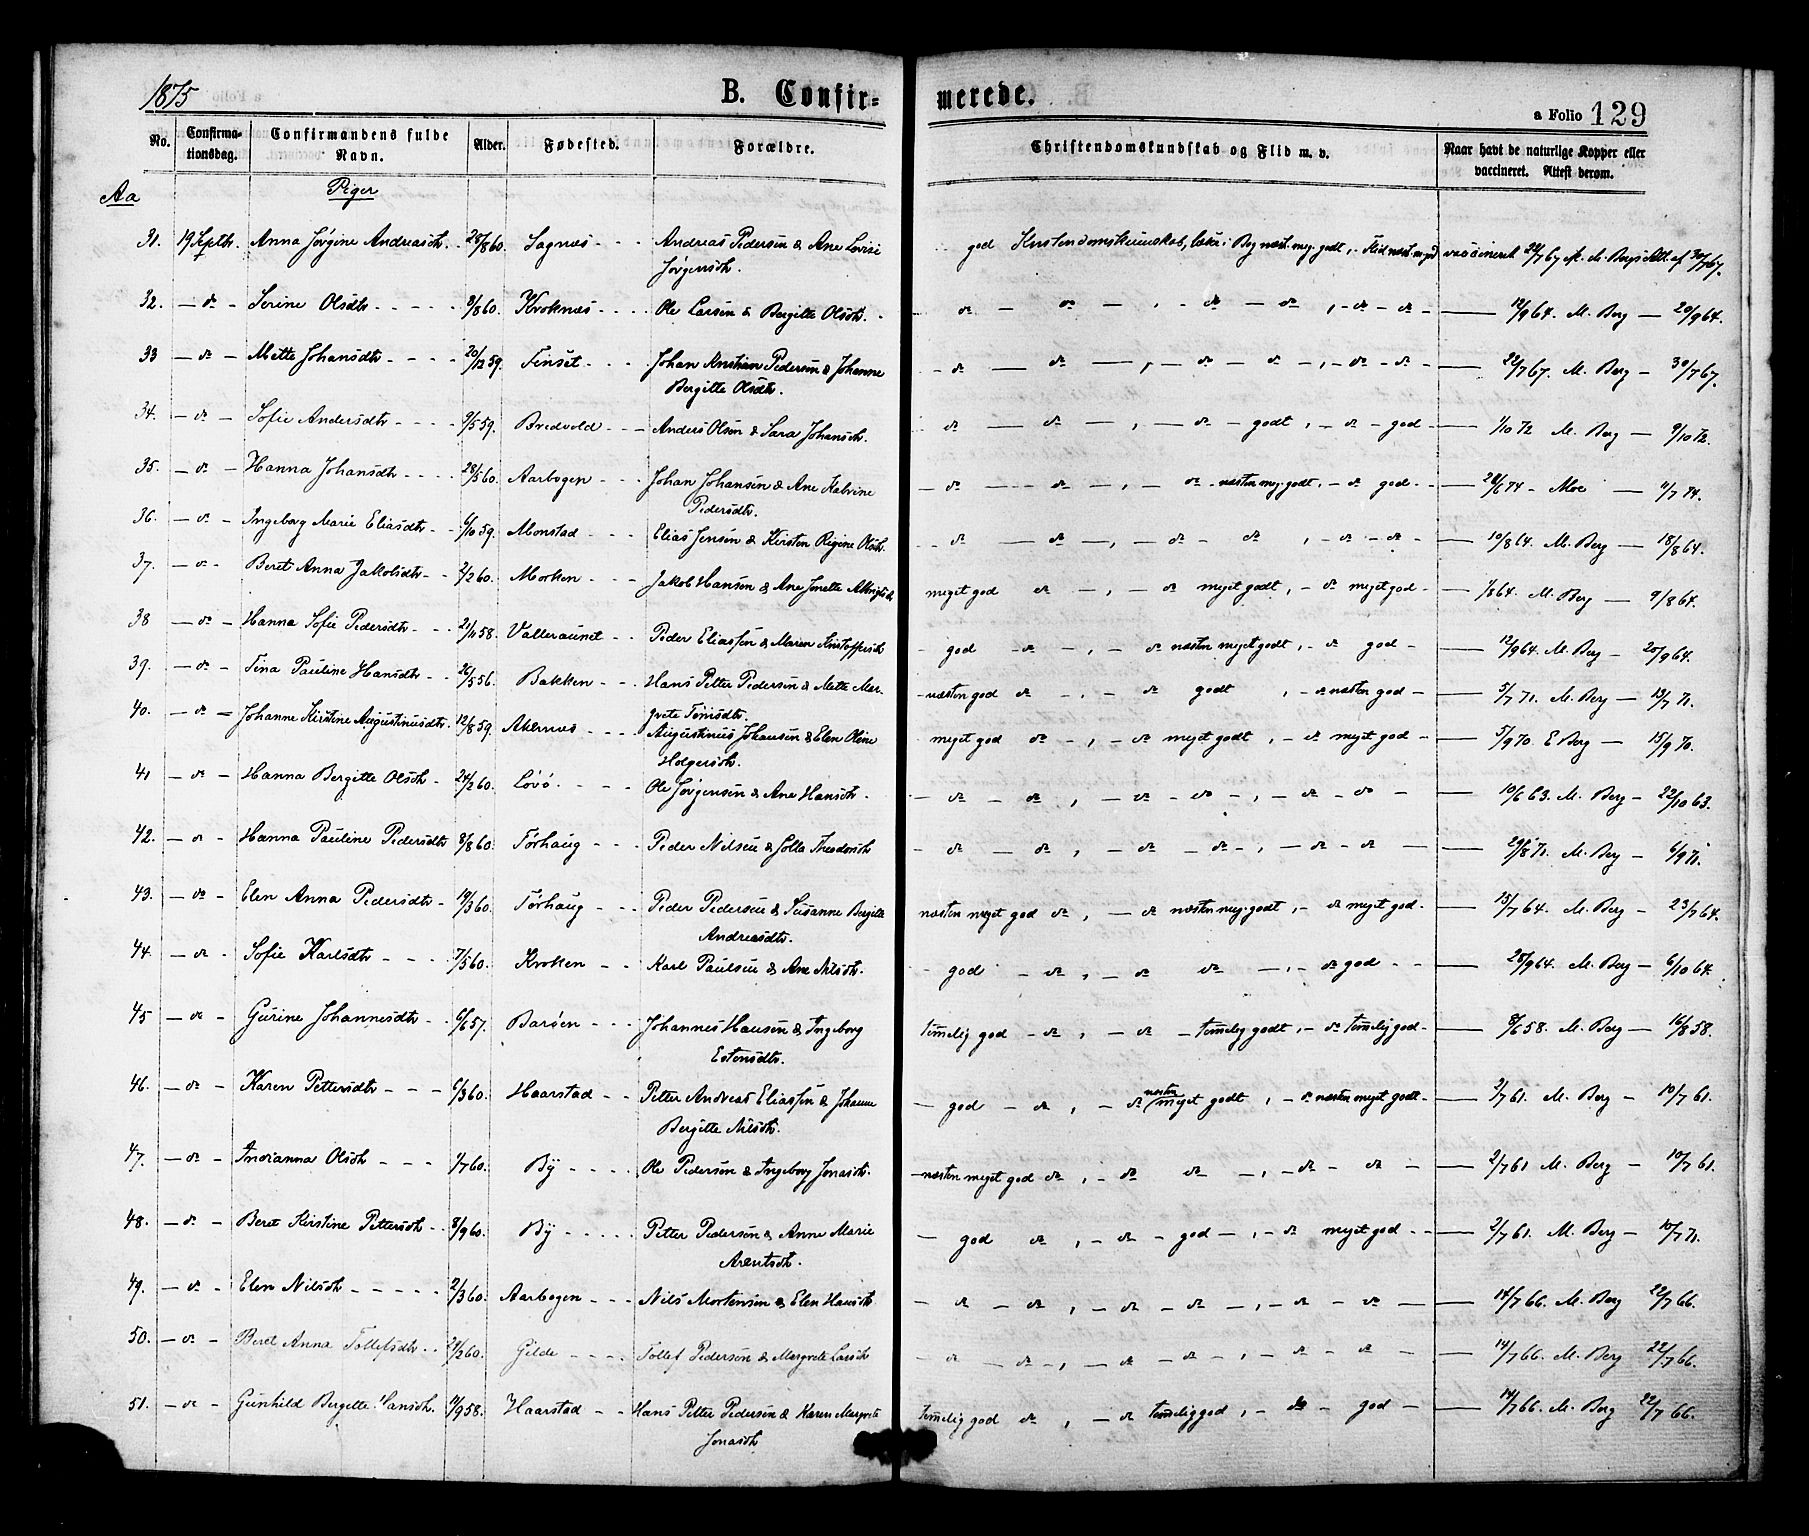 1875
B. Confirmerede.
a Folio 129
No. Confirmationsdag. Confirmandens fulde Navn. Alder. Fødested. Forældre. Christendomskundskab og Flid m. v. Naar havt de naturlige Kopper eller vaccineret. Attest derom.
Aa Piger
31. 19 Septbr. Anna Jørgine Andreasdtr. 28/8 60. Sagnæs Andreas Pedersen & Ane Lovise god Kristendomskundskab, læser i Bog næst. meg. godt, Flid næst. m. god vaccineret 22/7 67 af M. Bergs Att. af 30/7 67.
Jørgensdtr.
32. - do - Serine Olsdtr 8/8 60. Kroknæs Ole Larsen & Bergitte Olsdtr. - do - do -, - do - do, - do - do - 12/9 64. M. Berg - 20/9 64.
33 - do - Mette Johansdtr 20/12 59. Finset Johan Kristian Pedersen & Johanne - do - do -, - do - do -, - do - do - 22/7 67. M. Berg - 30/7 67.
Bergitte Olsdtr.
34. - do - Sofie Andersdtr 9/5 59. Bredvold Anders Olsen & Sara Johansdtr. do - do -, - do - godt, - do - god - 1/10 72 M. Berg - 9/10 72.
35. - do - Hanna Johansdtr 28/5 60. Aarbogen Johan Johansen & Ane Katrine - do - do -, - do - næsten meg. godt, - do god - 28/6 74 - Moe - 11/7 74.
Pedersdtr.
36. - do - Ingeborg Marie Eliasdtr 6/10 59. Monstad Elias Jensen & Kirsten Regine Olsdtr. - do - do -, - do - do, - do - do - 10/8 64. M. Berg - 18/8 64.
37. - do - Beret Anna Jakobsdtr 2/2 60. Morken Jakob Hansen & Ane Jonette meget god do -, - do meget godt, - do meget god - 1/8 64. M. Berg - 9/8 64.
38 - do - Hanna Sofie Pedersdtr 21/11 58. Valleraunet Peder Eliassen & Maren Kristoffersdtr - god - do -, - do næsten meget godt, - do god - 12/9 64. M. Berg - 20/9 64.
39. - do - Tina Pauline Hansdtr 26/5 56. Bakken Hans Petter Pedersen & Mette Mar- - næsten god do -, - do godt, - do næsten god - 5/7 71. M. Berg - 13/7 71.
grete Tønisdtr.
40. - do - Johanne Kirstine Augustinusdtr. 12/8 59. Akernæs Augustinus Johansen & Elen Oline - meget god do -, - do meget godt, - do meget god - 5/9 70. E Berg - 15/9 70.
Holgersdtr.
41 - do - Hanna Bergitte Olsdtr 24/2 60. Løvø Ole Jørgensen & Ane Hansdtr. - do - do, - do - do -, - do - do - 10/6 63. M. Berg - 22/10 63.
42. - do - Hanna Pauline Pedersdtr 8/8 60. Tørhaug Peder Nilsen & Theodorsdtr - do - do, - do - do -, - do - do - 29/8 71. M. Berg - 6/9 71.
43. - do - Elen Anna Pedersdtr 19/3 60. Tørhaug Peder Pedersen & Susanne Bergitte næsten meget god do, - do næsten meg. godt, - do meget god - 15/7 64. M. Berg - 23/7 64.
Andreasdtr.
44. - do - Sofie Karlsdtr 7/5 60. Kroken Karl Paulsen & Ane Nilsdtr. - god - do, - do do -, - do god - 28/9 64. M. Berg - 6/10 64.
45 - do - Gurine Johannesdtr 6/6 57. Barøen Johannes Hansen & Ingeborg temmelig god - do, - do - temmelig godt, - do temmelig god - 8/6 58. M. Berg - 16/8 58.
Estensdtr.
46. - do - Karen Pettersdtr 6/3 60. Haarstad Petter Andreas Eliassen & Johanne - god - do, - do næsten meget godt, - do næsten meget godt - 2/7 61. M. Berg - 10/7 61.
Bergitte Nilsdtr.
47. - do - Indianna Olsdtr 1/7 60. By Ole Pedersen & Ingeborg Jonasdtr. - næsten meget god do, - do do -, - do - do - 2/7 61 M. Berg - 10/7 61.
48. - do - Beret Kirstine Pettersdtr 8/9 60. By Petter Pedersen & Anne Marie - god do, - do - god -, - do meget god - 2/7 61. M. Berg - 10/7 71.
Arentsdtr.
49. - do - Elen Nilsdtr 2/3 60. Aarbogen Nils Mortensen & Elen Hansdtr - do - do, - do - do -, - do - do - 14/7 66. M. Berg 22/7 66.
50. - do - Beret Anna Tollefsdtr 29/2 60. Gilde Tollef Pedersen & Margrete Larsdtr - do - do, - do - do -, - do - do - 14/7 66. M. Berg 22/7 66.
51. - do - Gunhild Bergette Hansdtr. 11/9 58. Haarstad Hans Petter Pedersen & Karen Margrete temmelig god do, - do temmelig god, - do - god - 14/7 66. M. Berg 22/7 66.
Jonasdtr